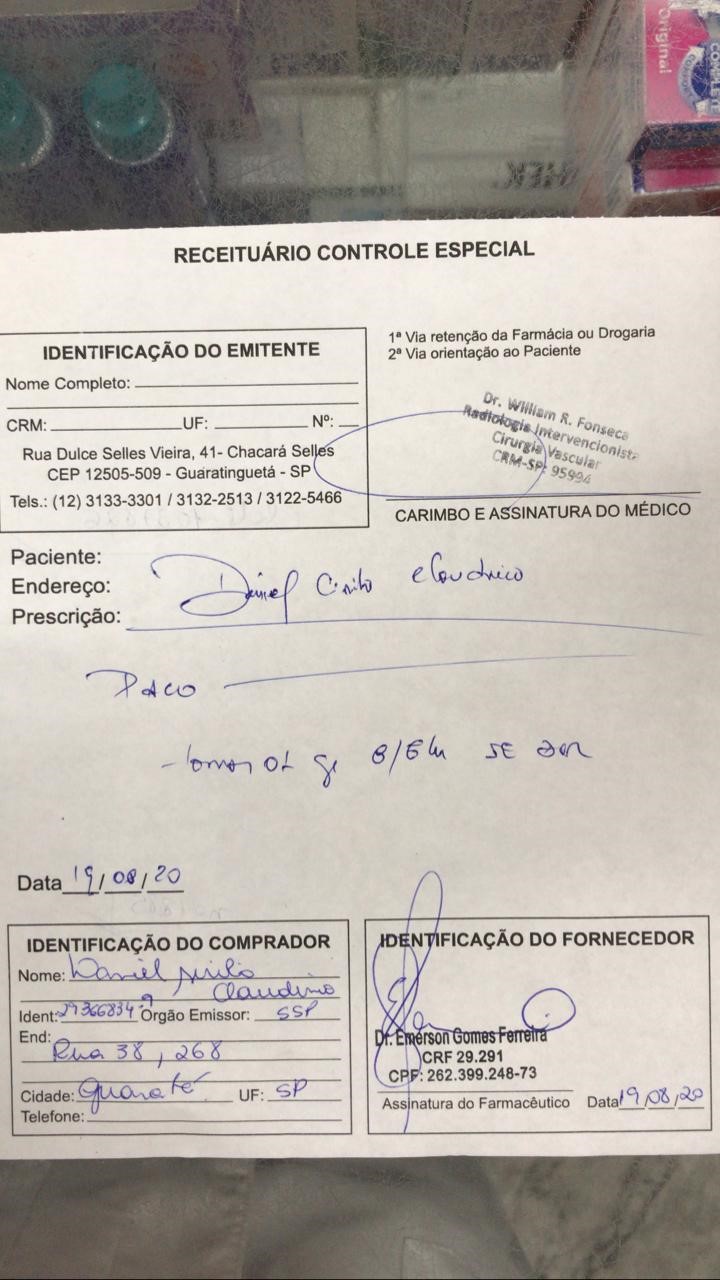 Original
COMPLETE
RECEITUÁRIO CONTROLE ESPECIAL
IDENTIFICAÇÃO DO EMITENTE
Nome Completo:
CRM: UF: Nº:
Rua Dulce Selles Vieira, 41- Chacará Selles
CEP 12505-509 - Guaratinguetá - SP
Tels.: (12) 3133-3301 / 3132-2513 / 3122-5466
1ª Via retenção da Farmácia ou Drogaria
2ª Via orientação ao Paciente
Dr. William R. Fonseca
Radiologia Intervencionista
Cirurgia Vascular
CRM-SP: 95994
CARIMBO E ASSINATURA DO MÉDICO
Paciente:
Endereço:
Prescrição:
Daniel Cirilo Claudino
PACO
- tomar 01 8/8h SE DOR
Data 19/08/20
IDENTIFICAÇÃO DO COMPRADOR
Nome: Daniel Cirilo
Claudino
Ident: 29366834-9 Órgão Emissor: SSP
End:
Rua 38, 268
Cidade: Guaratê UF: SP
Telefone:
IDENTIFICAÇÃO DO FORNECEDOR
Dr. Emerson Gomes Ferreira
CRF 29.291
CPF: 262.399.248-73
Assinatura do Farmacêutico Data 19/08/20